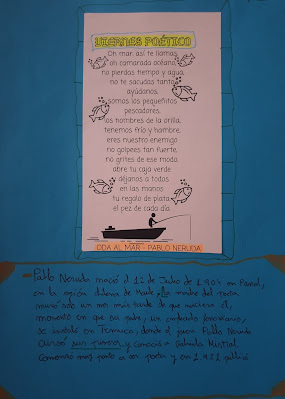 VIERNES POÉTICO
Oh mar, así te llamas,
oh camarada océano,
no pierdas tiempo y agua,
no te sacudas tanto,
ayúdanos,
somos los pequeñitos
pescadores,
los hombres de la orilla,
tenemos frío y hambre
eres nuestro enemigo
no golpees tan fuerte,
no grites de ese modo
abre tu caja verde
déjanos a todos
en las manos
tu regalo de plata
el pez de cada día.
ODA AL MAR - PABLO NERUDA
Pablo Neruda nació el 12 de Julio de 1.904 en Parral,
en la región chilena de Maule. La madre del poeta
murió solo un mes más tarde de que naciera él,
momento en que su padre, un empleado ferroviario,
se instaló en Temuco, donde el joven Pablo Neruda
cursó sus y conoció a Gabriela Mistral.
Comenzó muy pronto a ser poeta y en 1.921 publicó